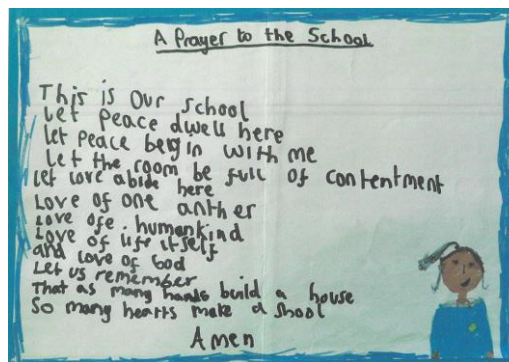 A Prayer to the School
This is Our school
Let Peace dwell here
let Peace begin with me
Let the room be full of contentment
let love abide here
Love of one anther
Love ofe humankind
Love of life itself
and love of God
Let us remember
That as many hands build a house
So many hearts make a shool
Amen